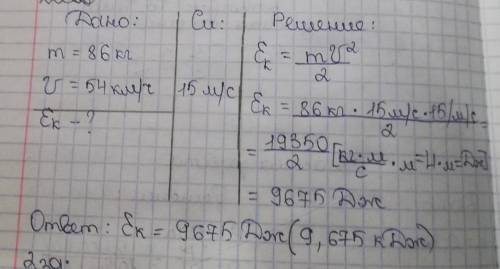 Дано:
m = 86 кг
V = 54 км/ч
Ek - ?
Си:
15 м/с
Решение:
Ek = mV²/2
Ek = 86 кг · 15 м/с · 15 м/с / 2 =
= 19350/2 [кг·м/с · м = Н·м = Дж]
= 9675 Дж
Ответ: Ek = 9675 Дж (9,675 кДж)